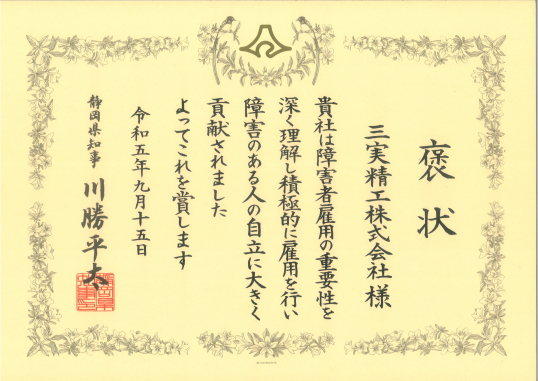 褒状
三実精工株式会社 様
貴社は障害者雇用の重要性を
深く理解し積極的に雇用を行い
障害のある人の自立に大きく
貢献されました
よってこれを賞します
令和五年九月十五日
静岡県知事 川勝平太